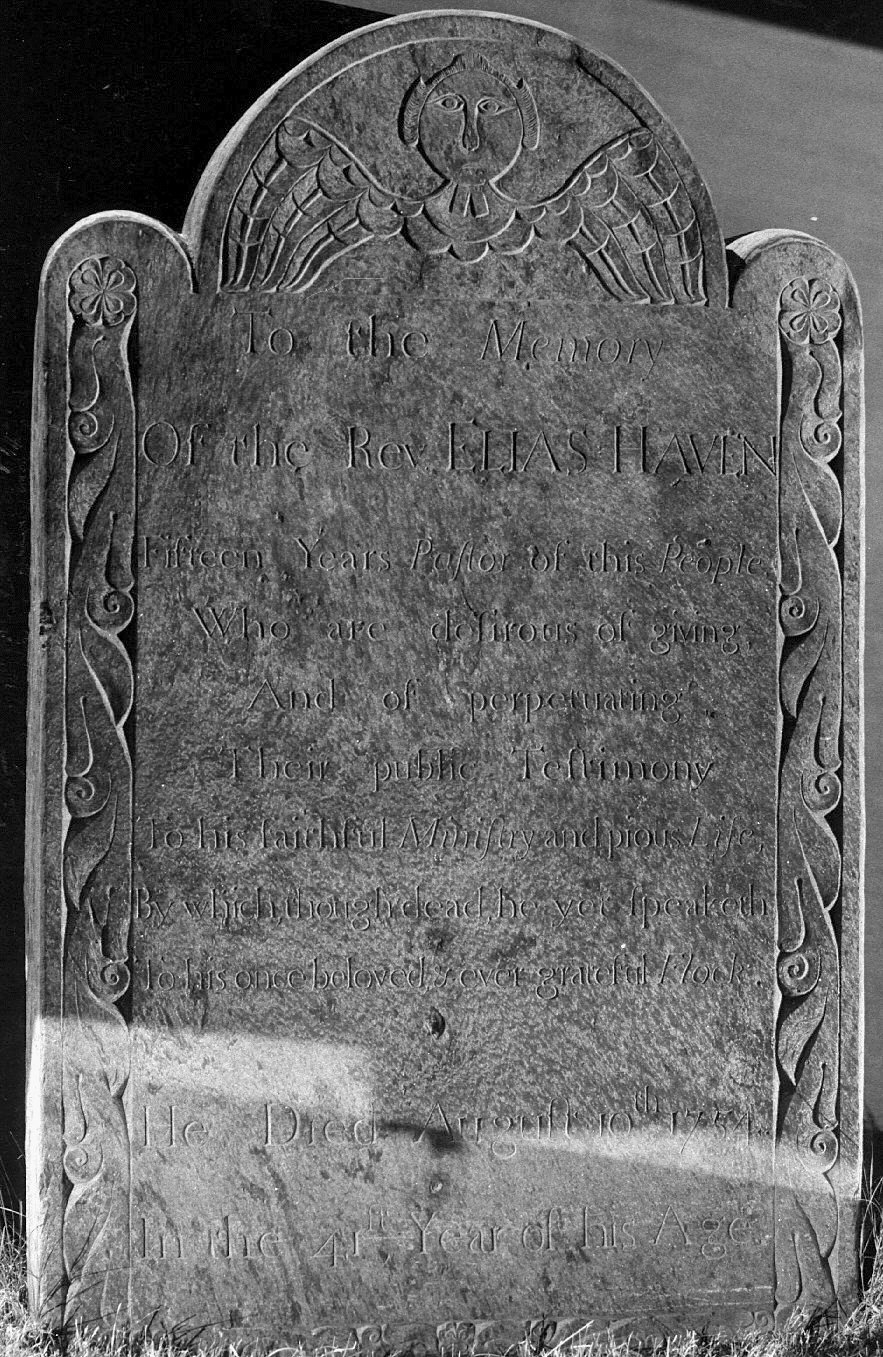 To the Memory
Of the Rev. ELIAS HAVEN
Fifteen Years Paſtor of this People
Who are deſirous of giving,
And of perpetuating
Their public Teſtimony
To his faithful Miniſtry and pious Life,
By which, though dead, he yet ſpeaketh
To his once beloved, & ever grateful Flock.
He Died Auguſt 10th 1754.
In the 41ſt Year of his Age.